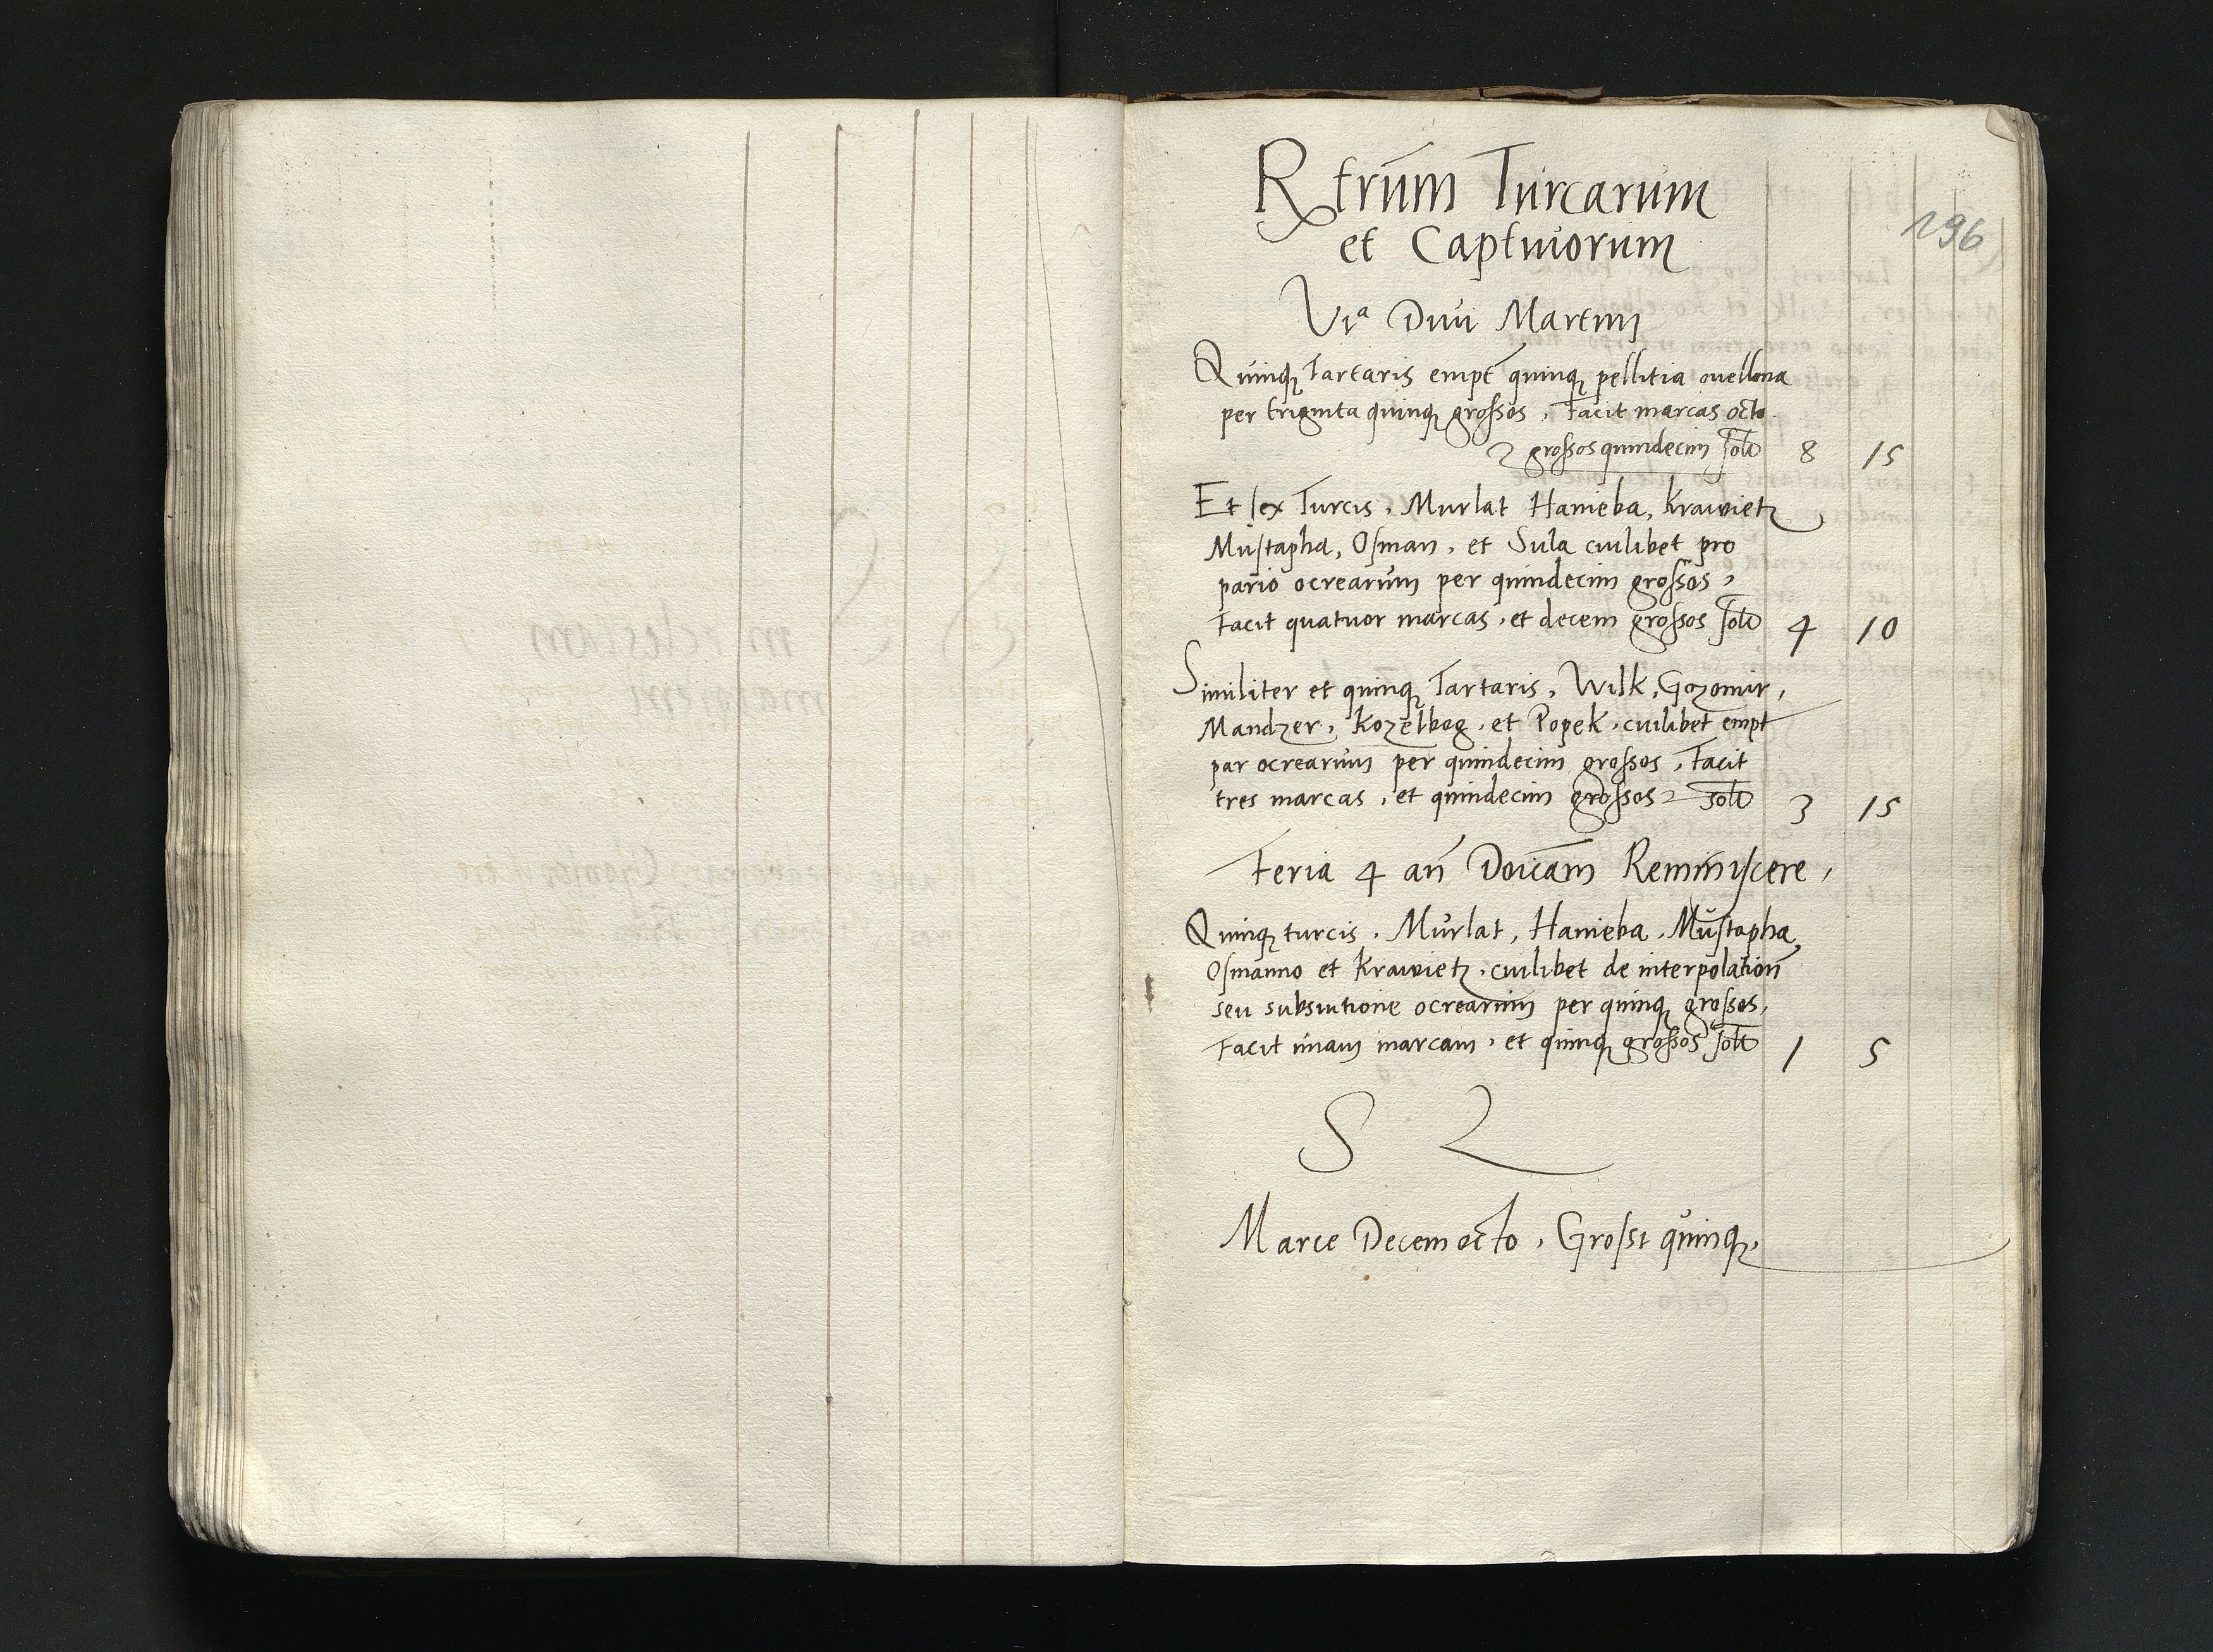 R trūm Turcarum
196
et Captiuorum
Vıª Diui Martini
Quinq Tartaris empt quinq pellitia ouellona
per triginta quinq grossos, facit marcas octo
grossos quindecim solt 8 15
Et sex Turcis, Murlat Hanieba, Krawietz
Mustapha, Osman, et Sula cuilibet pro
pario ocrearum per quindecim grossos,
facit quatuor marcas, et decem grossos solt 4 10
Similiter et quinq Tartaris, Wilk, Gozomir,
Mandzer, Kozelbeg, et Popek, cuilibet empt
par ocrearum per quindecim grossos, facit
tres marcas, et quindecim grossos solt 3 15
Feria 4 an Doicam Reminiscere,
Quinq turcis, Murlat, Hanieba, Mustapha,
Osmanno et Krawietz, cuilibet de interpolation
seu subsutione ocrearum per quinq grossos,
facit unam marcam, et quinq grossos solt 1 5
S
Marce Decem octo, Grossi quinq,